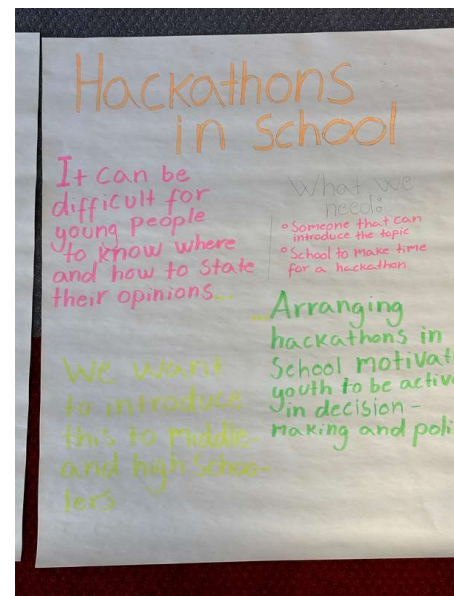 Hackathons
in School
It can be
difficult for
young people
to know where
and how to state
their opinions...
What we
need:
Someone that can
introduce the topic
School to make time
for a hackathon
...Arranging
hackathons in
School motivat
youth to be activ
in decision-
making and poli
We want
to introduce
this to middle-
and high schoo-
lers